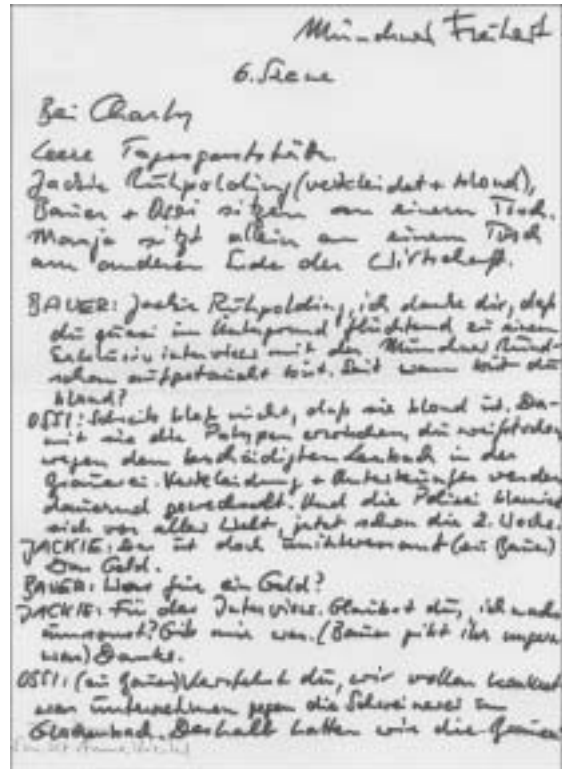 Münchner Freiheit
6. Szene
Bei Charly
Leere Tagesgaststätte.
Jackie Ruhpolding (verkleidet + blond),
Bauer + Ossi sitzen an einem Tisch.
Manja sitzt allein an einem Tisch
am anderen Ende der Wirtschaft.
BAUER: Jackie Ruhpolding, ich danke dir, daß
du quasi im Untergrund flüchtend zu einem
Exklusivinterview mit der Münchner Rund-
schau aufgetaucht bist. Seit wann bist du
blond?
OSSI: Schreib bloß nicht, daß sie blond ist. Da-
mit sie die Polypen erwischen, du weißt schon
wegen dem beschädigten Lenbach in der
Verkleidung + Unterkünfte werden
dauernd gewechselt. Und die Polizei blamiert
sich vor aller Welt, jetzt schon die 2. Woche.
JACKIE: Das ist doch uninteressant (zu Bauer)
Das Geld.
BAUER: Was für ein Geld?
JACKIE: Für das Interview. Glaubst du, ich mach
umsonst? Gib mir was. (Bauer gibt ihr ungern
was) Danke.
OSSI: (zu Bauer) Verstehst du, wir wollen konkret
was unternehmen gegen die Schweinerei im
Glockenbach. Deshalb hatten wir die